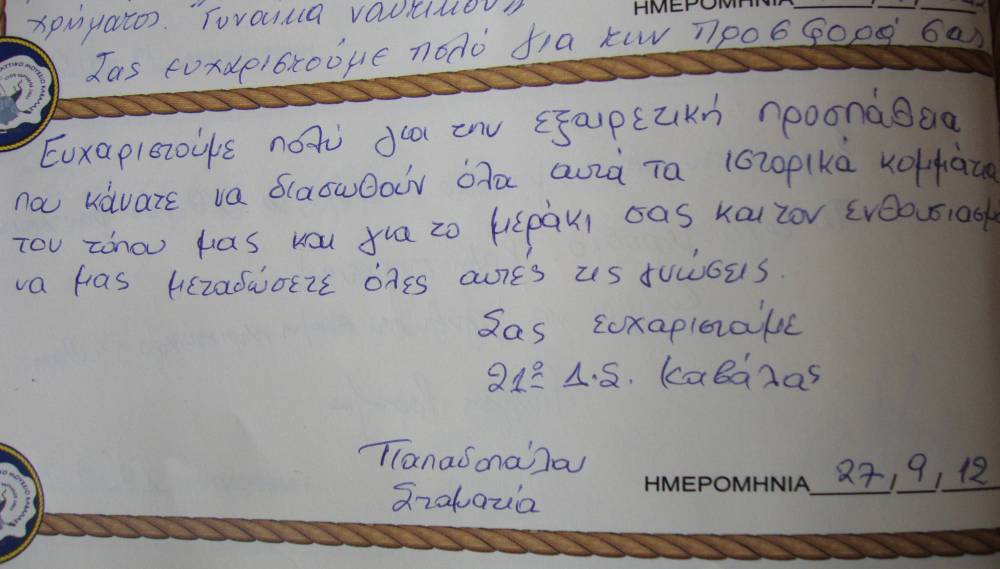 χρήματος. Γυναίκα ναυτικού
ΗΜΕΡΟΜΗΝΙΑ
Σας ευχαριστούμε πολύ για την προσφορά σας
Ευχαριστούμε πολύ για την εξαιρετική προσπάθεια
που κάνατε να διασωθούν όλα αυτά τα ιστορικά κομμάτια
του τόπου μας και για το μεράκι σας και τον ενθουσιασμ
να μας μεταδώσετε όλες αυτές τις γνώσεις.
Σας ευχαριστούμε
21º Δ.Σ. Καβάλας
Παπαδοπούλου
Σταματία
ΗΜΕΡΟΜΗΝΙΑ 27, 9, 12